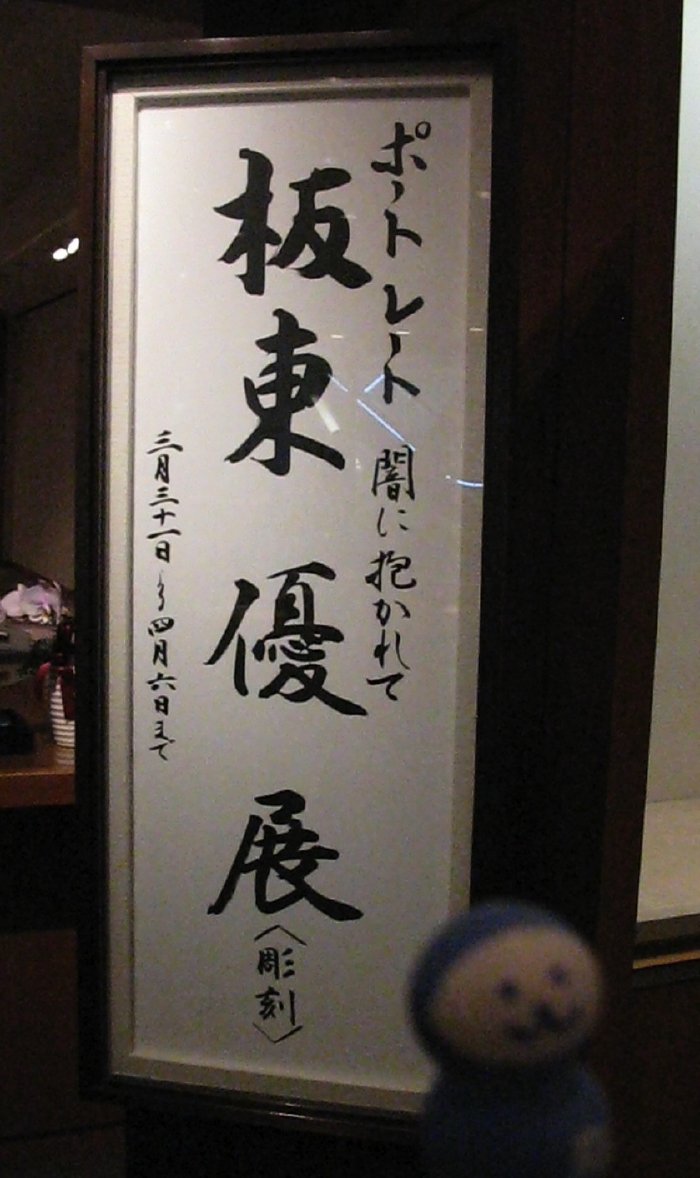 ポートレート 闇に抱かれて
板東優展〈彫刻〉
三月三十一日〜四月六日まで